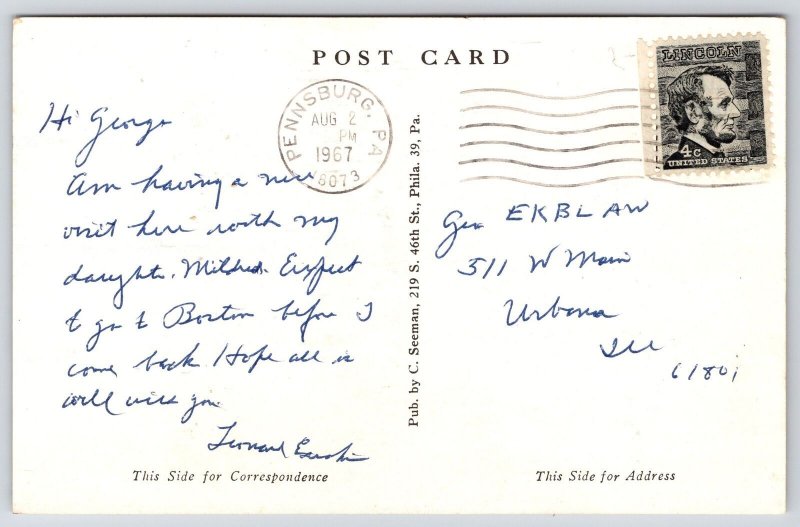 POST CARD
LINCOLN
4c
UNITED STATES
PENNSBURG, PA
AUG 2
PM
1967
18073
Hi George
Am having a nice
visit here with my
daughter, Mildred. Expect
to go to Boston before I
come back Hope all is
well with you
Leonard
Pub. by C. Seeman, 219 S. 46th St., Phila. 39, Pa.
Geo EKBLAW
511 W Main
Urbana
Ill
61801
This Side for Correspondence
This Side for Address